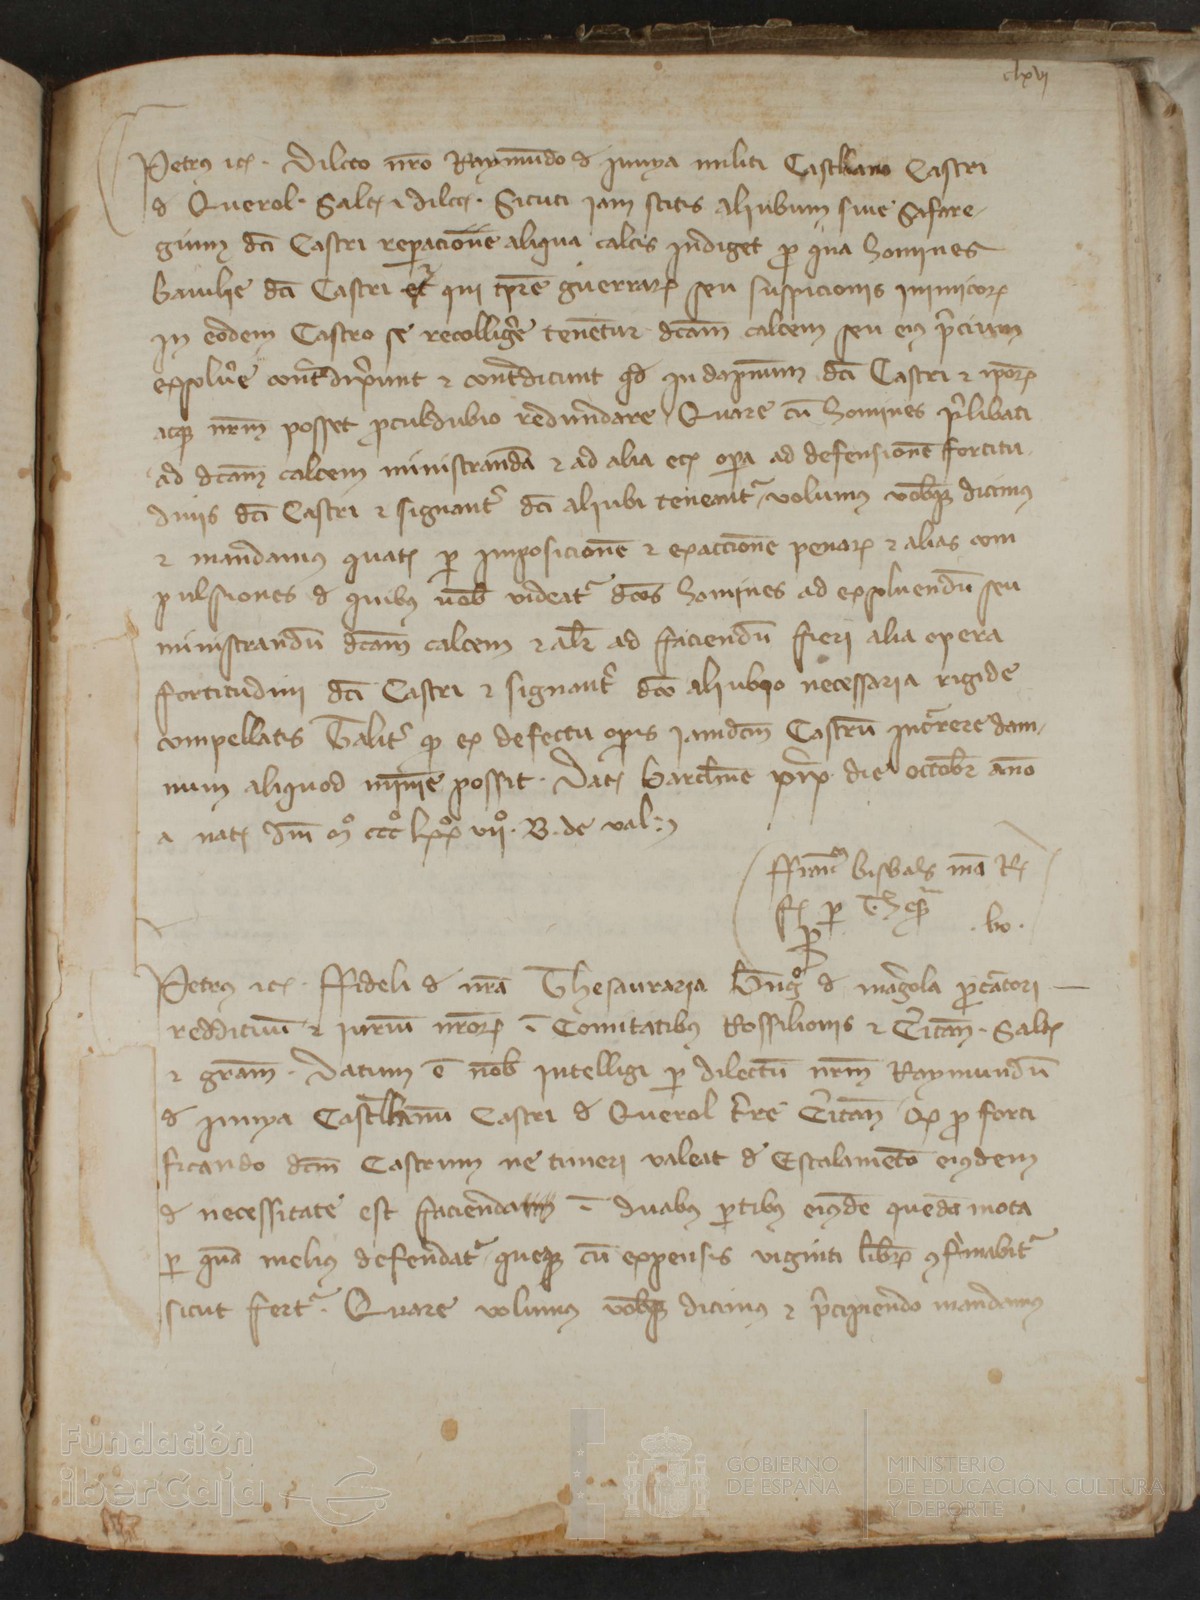 clxvi
Petrus etc. Dilecto nro Raymundo d Junya militi Castllano Castri
d Querol. Saltm et dilccm. Sicuti iam scitis aljubum sive Safare-
gium dci Castri repacione aliqua calcis indiget p qua homines
baiulie dci Castri et qui tpre guerrarum seu suspicionis inimicorum
in eodem Castro se recolligere tenetur dcam calcem seu eius precium
exsolvere contradixerunt et contradicunt qd in dapnum dci Castri et ipsorum
atque nrm posset proculdubio redundare Quare cu homines prelibati
ad dcam calcem ministranda et ad alia etc opera ad defensione fortitu
dinis dci Castri et signanter dci aljubi teneantur volumus vobisque dicimus
et mandamus quatenus per imposicione et exaccione penarum et alias com
pulsiones d quibus vob videatur dcos homines ad exsolvendu seu
ministrandu dcam calcem et alr ad faciendu fieri alia opera
fortitudini dci Castri et signanter dco aljubo necessaria rigide
compellatis Taliter quod ex defectu operis iamdcm Castru incurrere dam-
num aliquod minime possit. Dat Barchne prima die octobr anno
a nat dni mo ccco lxxo viio. B. de val.
ffranc bisbals ma R
f per Thes
p bo.
Petrus etc. ffideli d nra Thesauraria Bngo d magrola procuratori
reddituum et iurium nrorum in Comitatibus Rossilionis et Ceritan. Saltm
et gram. Datum e nob intelligi per dilectu nrm Raymundu
d Junya Castllanu Castri d Querol terre Ceritan Quod pro forti
ficando dcm Castrum ne timeri valeat d Escalamento eiusdem
d necessitate est facienda in duabus partibus eiusde queda mota
per qua melius defendatur queque cu expensis viginti librarum confirmabitur
sicut fertur. Quare volumus vobisque dicimus et precipiendo mandamus
Fundación
iberCaja
GOBIERNO
DE ESPAÑA
MINISTERIO
DE EDUCACIÓN, CULTURA
Y DEPORTE